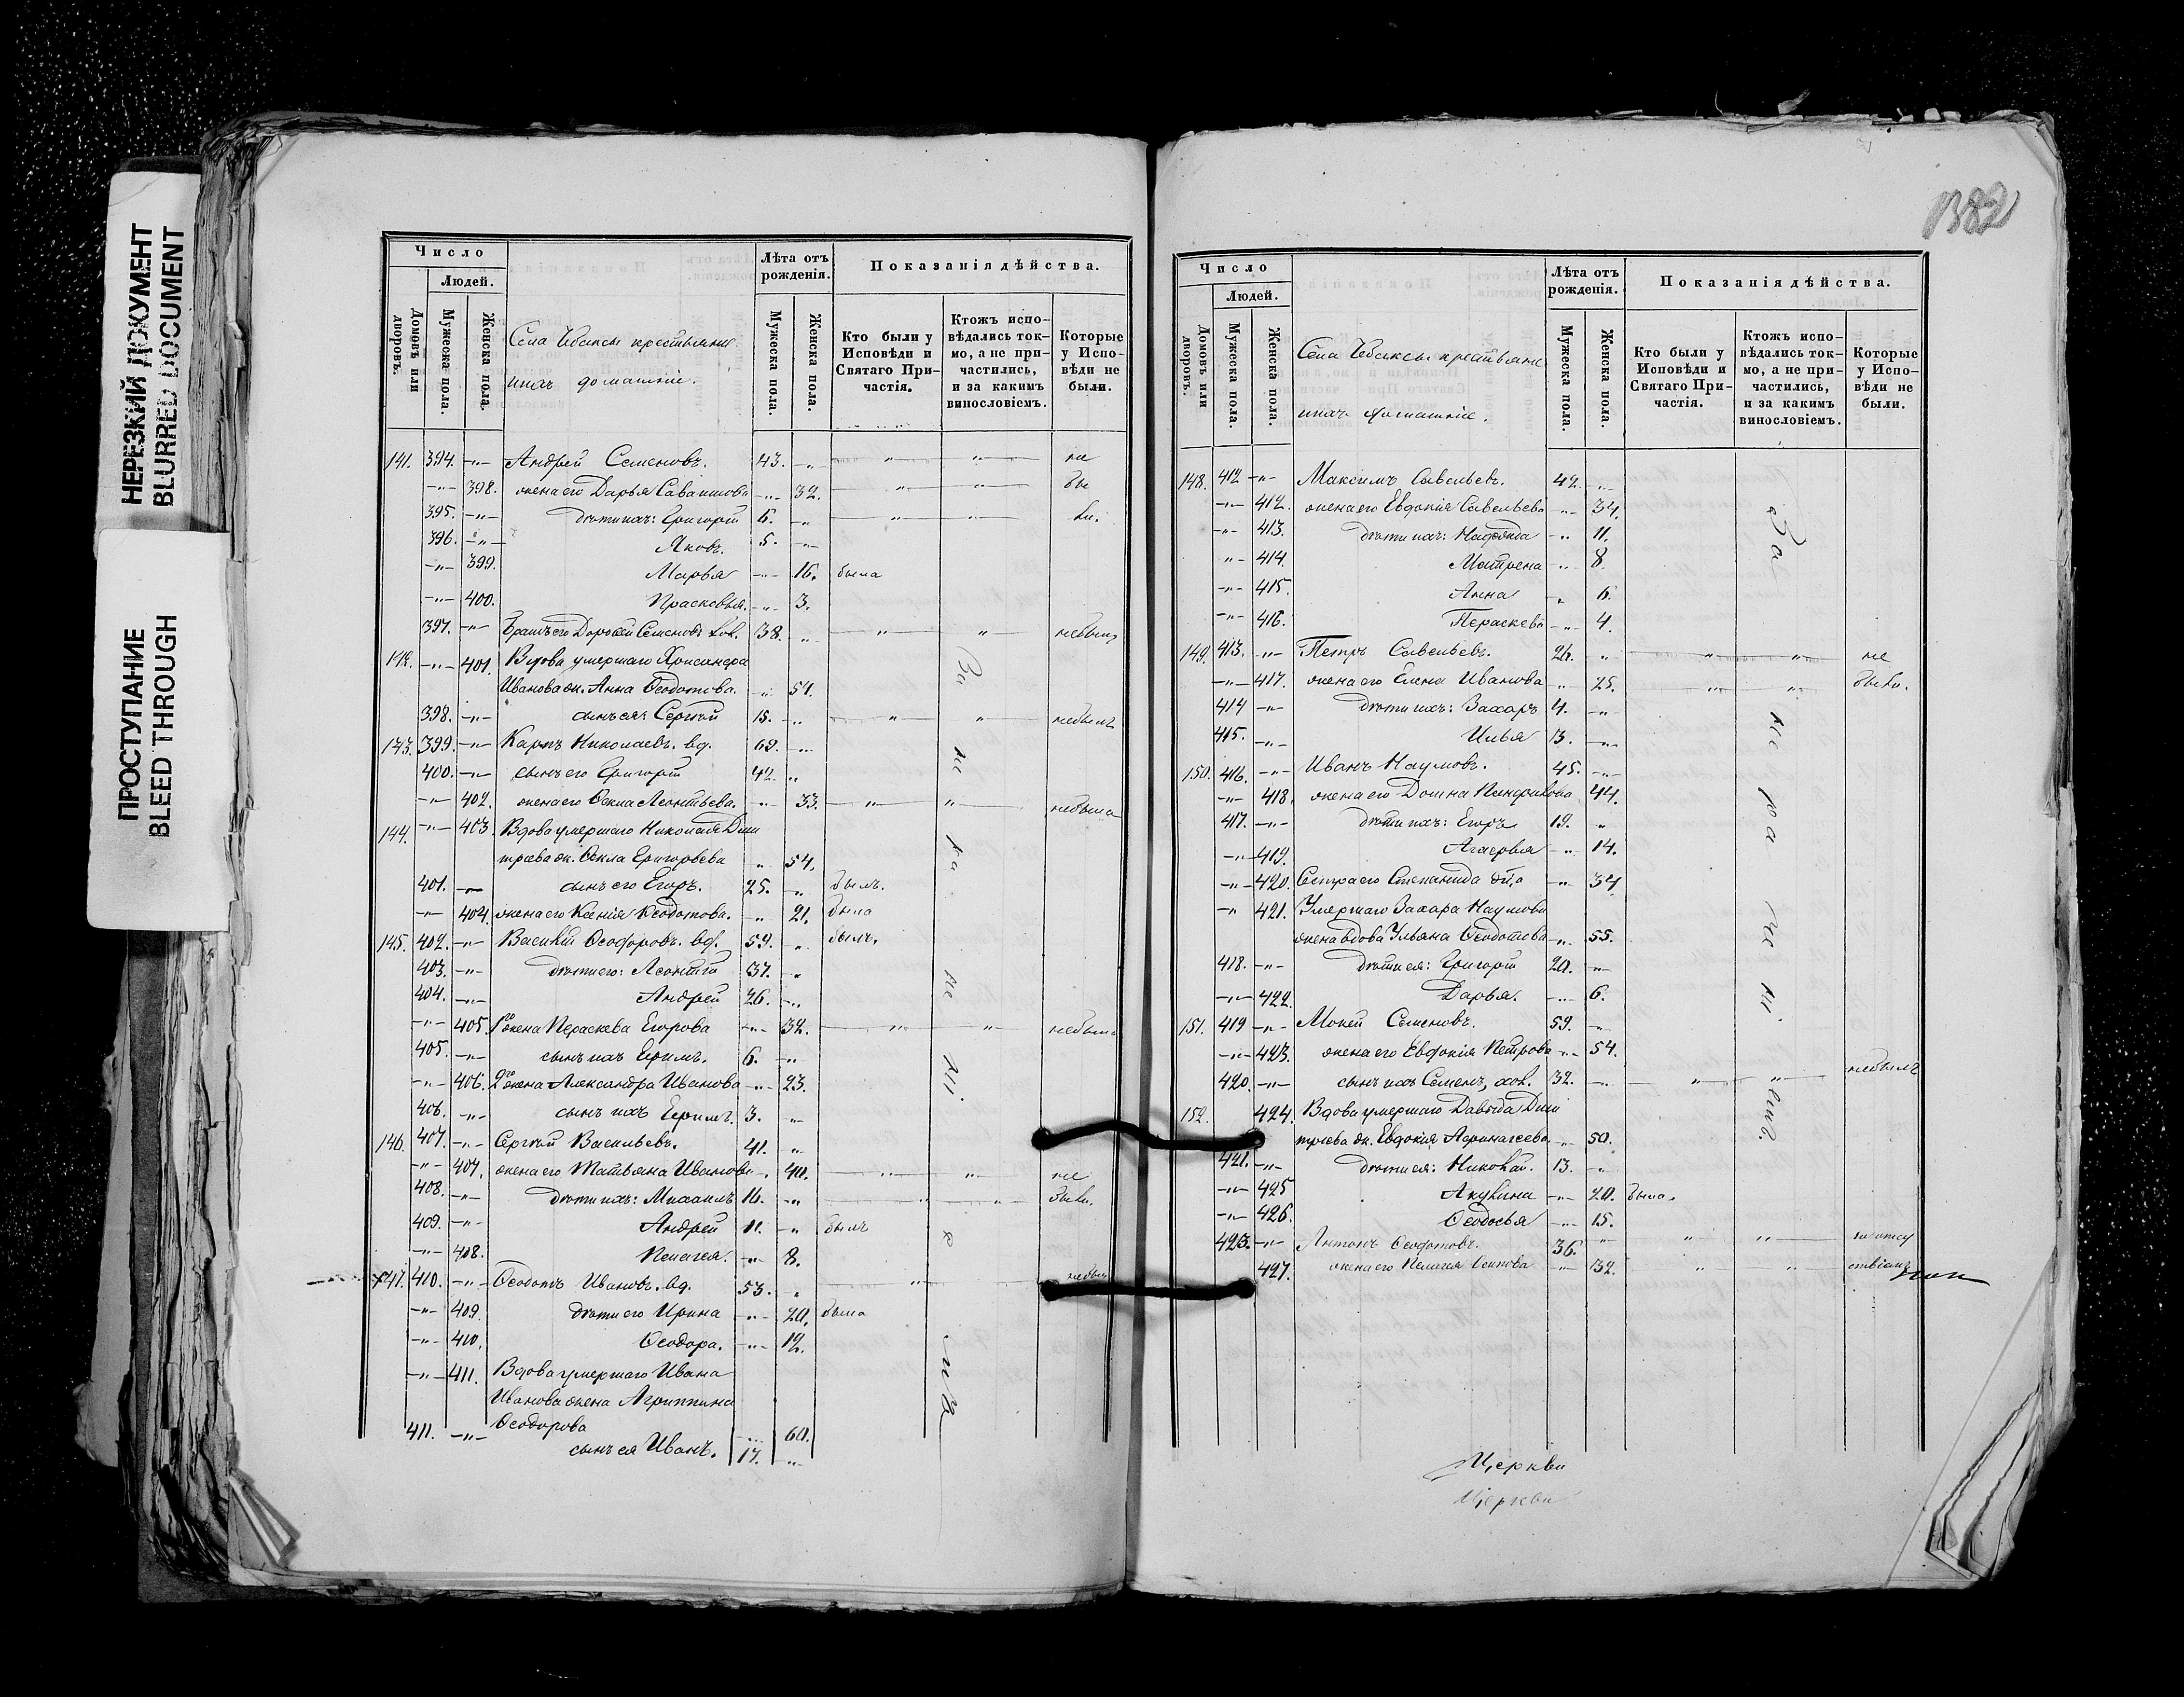 НЕРЕЗКИЙ ДОКУМЕНТ
BLURRED DOCUMENT
ПРОСТУПАНИЕ
BLEED THROUGH
Число
Людей.
Домовъ или дворовъ.
Мужеска пола.
Женска пола.
Села Чебаксы крестьяне
ихъ домашніе.
Лѣта отъ рожденія.
Мужеска пола.
Женска пола.
Показанія дѣйства.
Кто были у Исповѣди и Святаго Причастія.
Ктожъ исповѣдались токмо, а не причастились, и за какимъ винословіемъ.
Которые у Исповѣди не были.
141. 394. -„- Андрей Семеновъ. 43. -„- -„- -„- не
-„- 398. жена его Дарья Саватѣева -„- 32. -„- -„- бы
395. -„- дѣти ихъ: Григорій 6. -„- -„- -„- ли.
396. -„- Яковъ. 5. -„-
-„- 399. Марья -„- 16. была
-„- 400. Прасковья. -„- 3.
397. -„- Братъ его Дорофей Семеновъ хол. 38. „ -„- -„- небылъ
142. -„- 401 Вдова умершаго Хрисанфа
Иванова ж. Анна Ѳеодотова. -„- 54.
398. -„- сынъ ея: Сергѣй 15. -„- -„- -„- небылъ
143. 399. -„- Карпъ Николаевъ. вд. 69. -„-
400. -„- сынъ его Григорій 42. „
-„- 402. жена его Ѳекла Леонтьева. -„- 33. -„- „ небыла
144. -„- 403 Вдова умершаго Николая Дми
тріева ж. Ѳекла Григорьева „ 54.
401. -„- сынъ его Егоръ. 25. -„ былъ.
-„- 404. жена его Ксенія Ѳеодотова. -„ 21. была
145. 402. -„- Василій Ѳеодоровъ. вд. 59. „ былъ.
403. -„- дѣти его: Леонтій 37. -„
404. -„- Андрей 26. -„-
-„- 405. 1я жена Параскева Егорова -„- 32. -„- -„- небыла
405. -„- сынъ ихъ Ефимъ. 6. -„-
-„- 406. 2я жена Александра Иванова -„- 23.
406. -„- сынъ ихъ Ефимъ. 3. -„-
146. 407. -„- Сергѣй Васильевъ. 41. „
-„- 407. жена его Татьяна Иванова „ 40. -„- -„- не
408. -„- дѣти ихъ: Михаилъ 16. -„ -„- -„- были.
409. -„- Андрей 11. -„ былъ
-„- 408. Пелагея. -„- 8.
147. 410. -„- Ѳеодотъ Ивановъ. вд. 53. „ -„- небылъ
-„- 409. дѣти его Ирина -„- 20. была
-„- 410. Ѳеодора. -„- 12.
-„- 411. Вдова умершаго Ивана
Иванова жена Агриппина
Ѳеодорова -„- 60.
411. -„- сынъ ея Иванъ. 17. -„-
За
1382
Число
Людей.
Домовъ или дворовъ.
Мужеска пола.
Женска пола.
Села Чебаксы крестьяне
ихъ домашніе.
Лѣта отъ рожденія.
Мужеска пола.
Женска пола.
Показанія дѣйства.
Кто были у Исповѣди и Святаго Причастія.
Ктожъ исповѣдались токмо, а не причастились, и за какимъ винословіемъ.
Которые у Исповѣди не были.
148. 412 -„- Максимъ Савельевъ. 42. -„-
-„- 412. жена его Евдокія Савельева -„- 34.
-„- 413. дѣти ихъ: Надежда -„ 11.
„- 414. Матрена -„ 8
-„- 415. Анна „ 6.
-„- 416. Параскева -„- 4.
149. 413. -„- Петръ Савельевъ. 26. „ -„- -„- не
-„- 417. жена его Елена Иванова „ 25. -„- -„- были.
414 -„- дѣти ихъ: Захаръ 4. -„
415. -„- Илья 13. -„-
150. 416. -„- Иванъ Наумовъ. 45. -„-
-„- 418. жена его Домна Панфилова 44.
417. -„- дѣти ихъ: Егоръ 19. „
-„- 419. Агафья -„ 14.
-„- 420. Сестра его Степанида -„ 34
-„ 421. Умершаго Захара Наумова
жена вдова Ульяна Ѳеодотова -„- 55.
418. -„- дѣти ея: Григорій 20. -„-
-„- 422. Дарья. -„- 6.
151. 419 -„- Мокей Семеновъ. 59. -„
-„- 423. жена его Евдокія Петрова -„ 54.
420. -„- сынъ ихъ Семенъ, хол. 32. -„- -„- -„- небылъ
152. 424. Вдова умершаго Давыда Дми
тріева ж. Евдокія -„ 50.
421. -„- дѣти ея: Николай. 13. -„
-„- 425 Акулина -„- 20. была.
-„- 426. Ѳеодосья -„- 15.
423. -„- Антонъ Ѳеодотовъ. 36. „ „ -„-
427. жена его Пелагея Осипова -„ 32. „ „
За
Церкви
Церкви